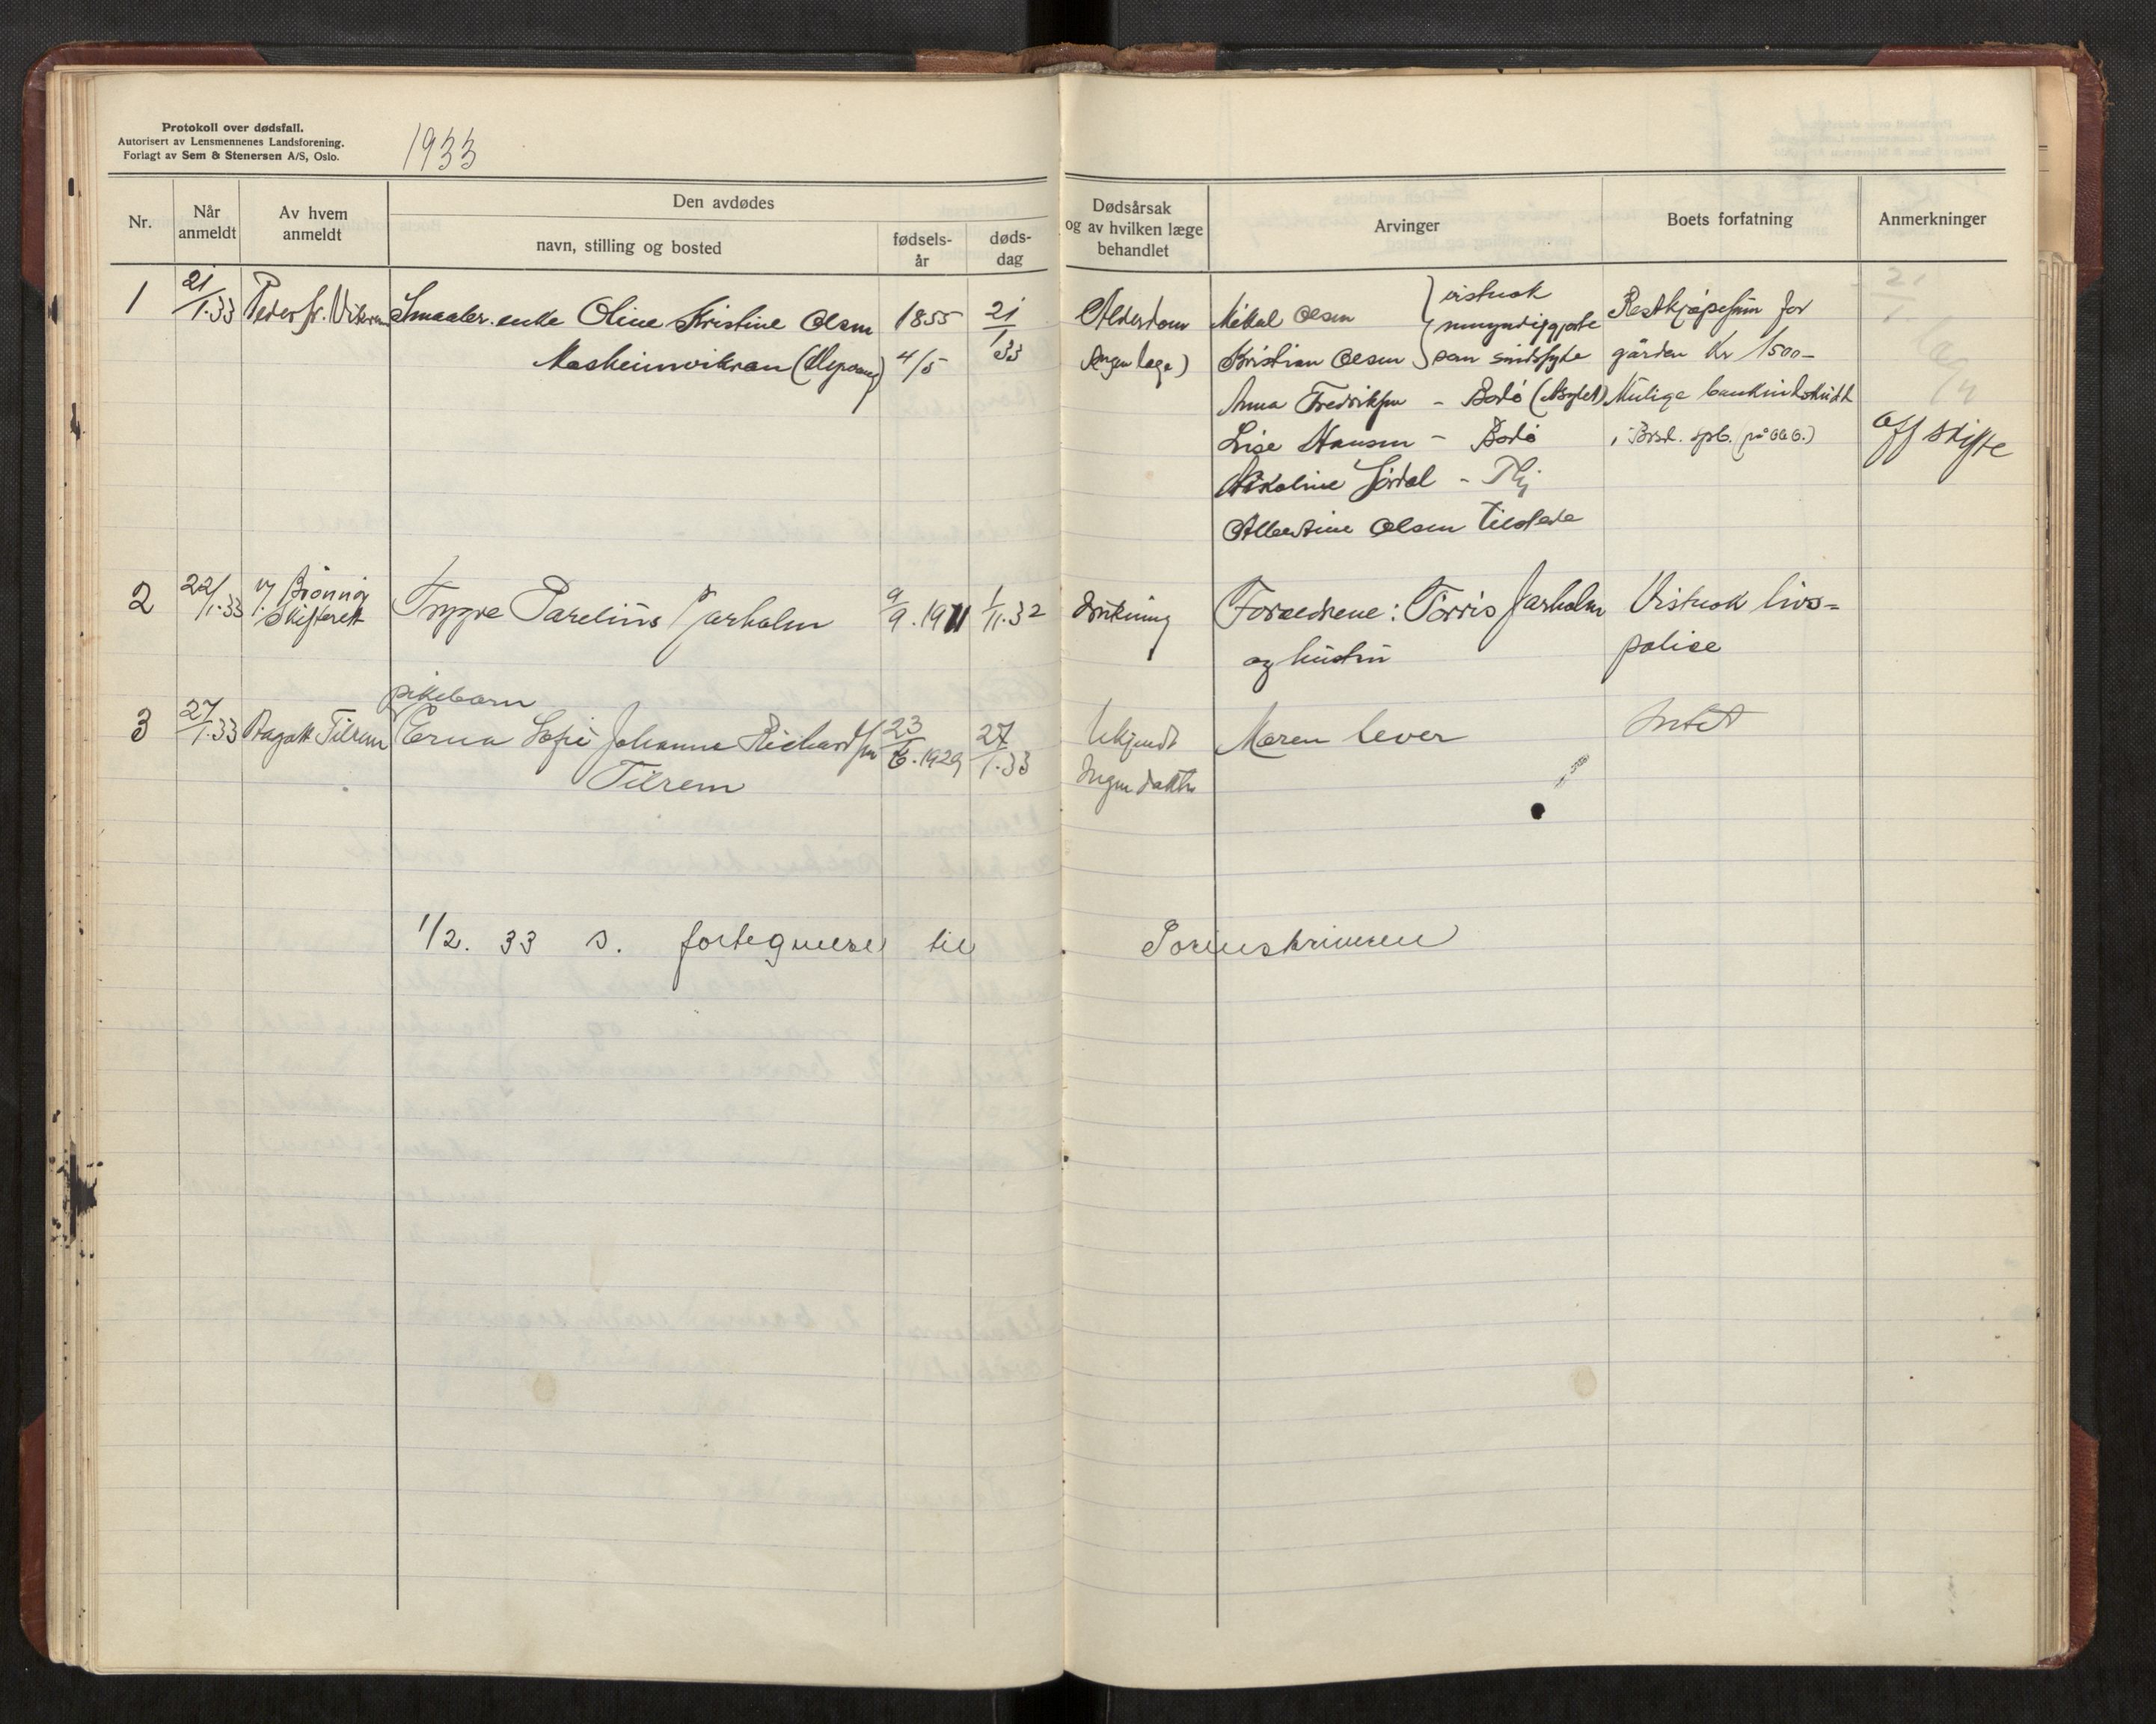 Protokoll over dødsfall.
Autorisert av Lensmennenes Landsforening.
Forlagt av Sem & Stenersen A/S, Oslo.
1933
Nr.
Når anmeldt
Av hvem anmeldt
Den avdødes
navn, stilling og bosted
fødsels-år
døds-dag
Dødsårsak og av hvilken læge behandlet
Arvinger
Boets forfatning
Anmerkninger
1
21/1.33
Peder
Smaabr. enke Oline Kristine Olsen
1855
4/5
21/1 33
Alderdom
(Ingen læge)
Mikal Olsen
Kristian Olsen
} vistnok
umyndiggjorte
som sindssyke
Anna Fredriksen - Bodö (Asylet)
Lise Hansen - Bodö
Nikoline - Thj
Albertine Olsen tilstede
Restkjøpesum for
gården Kr 1500-
Mulige bankindskudd
i spb.
Off skifte
2
22/1.33
v/ Brönnöy
Skifterett
Trygve Parelius Jarholm
9/9.1911
1/11.32
drukning
Foreldrene: Torris Jarholm
og hustru
Vistnok livs-
polise
3
27/1.33
Tilrem
pikebarn
Erna Sofie Johanne Richardsen
Tilrem
23/6.1929
27/1.33
Ukjendt
Ingen doktor
Moren lever
Intet
1/2. 33 s. fortegnelse til Sorenskriveren